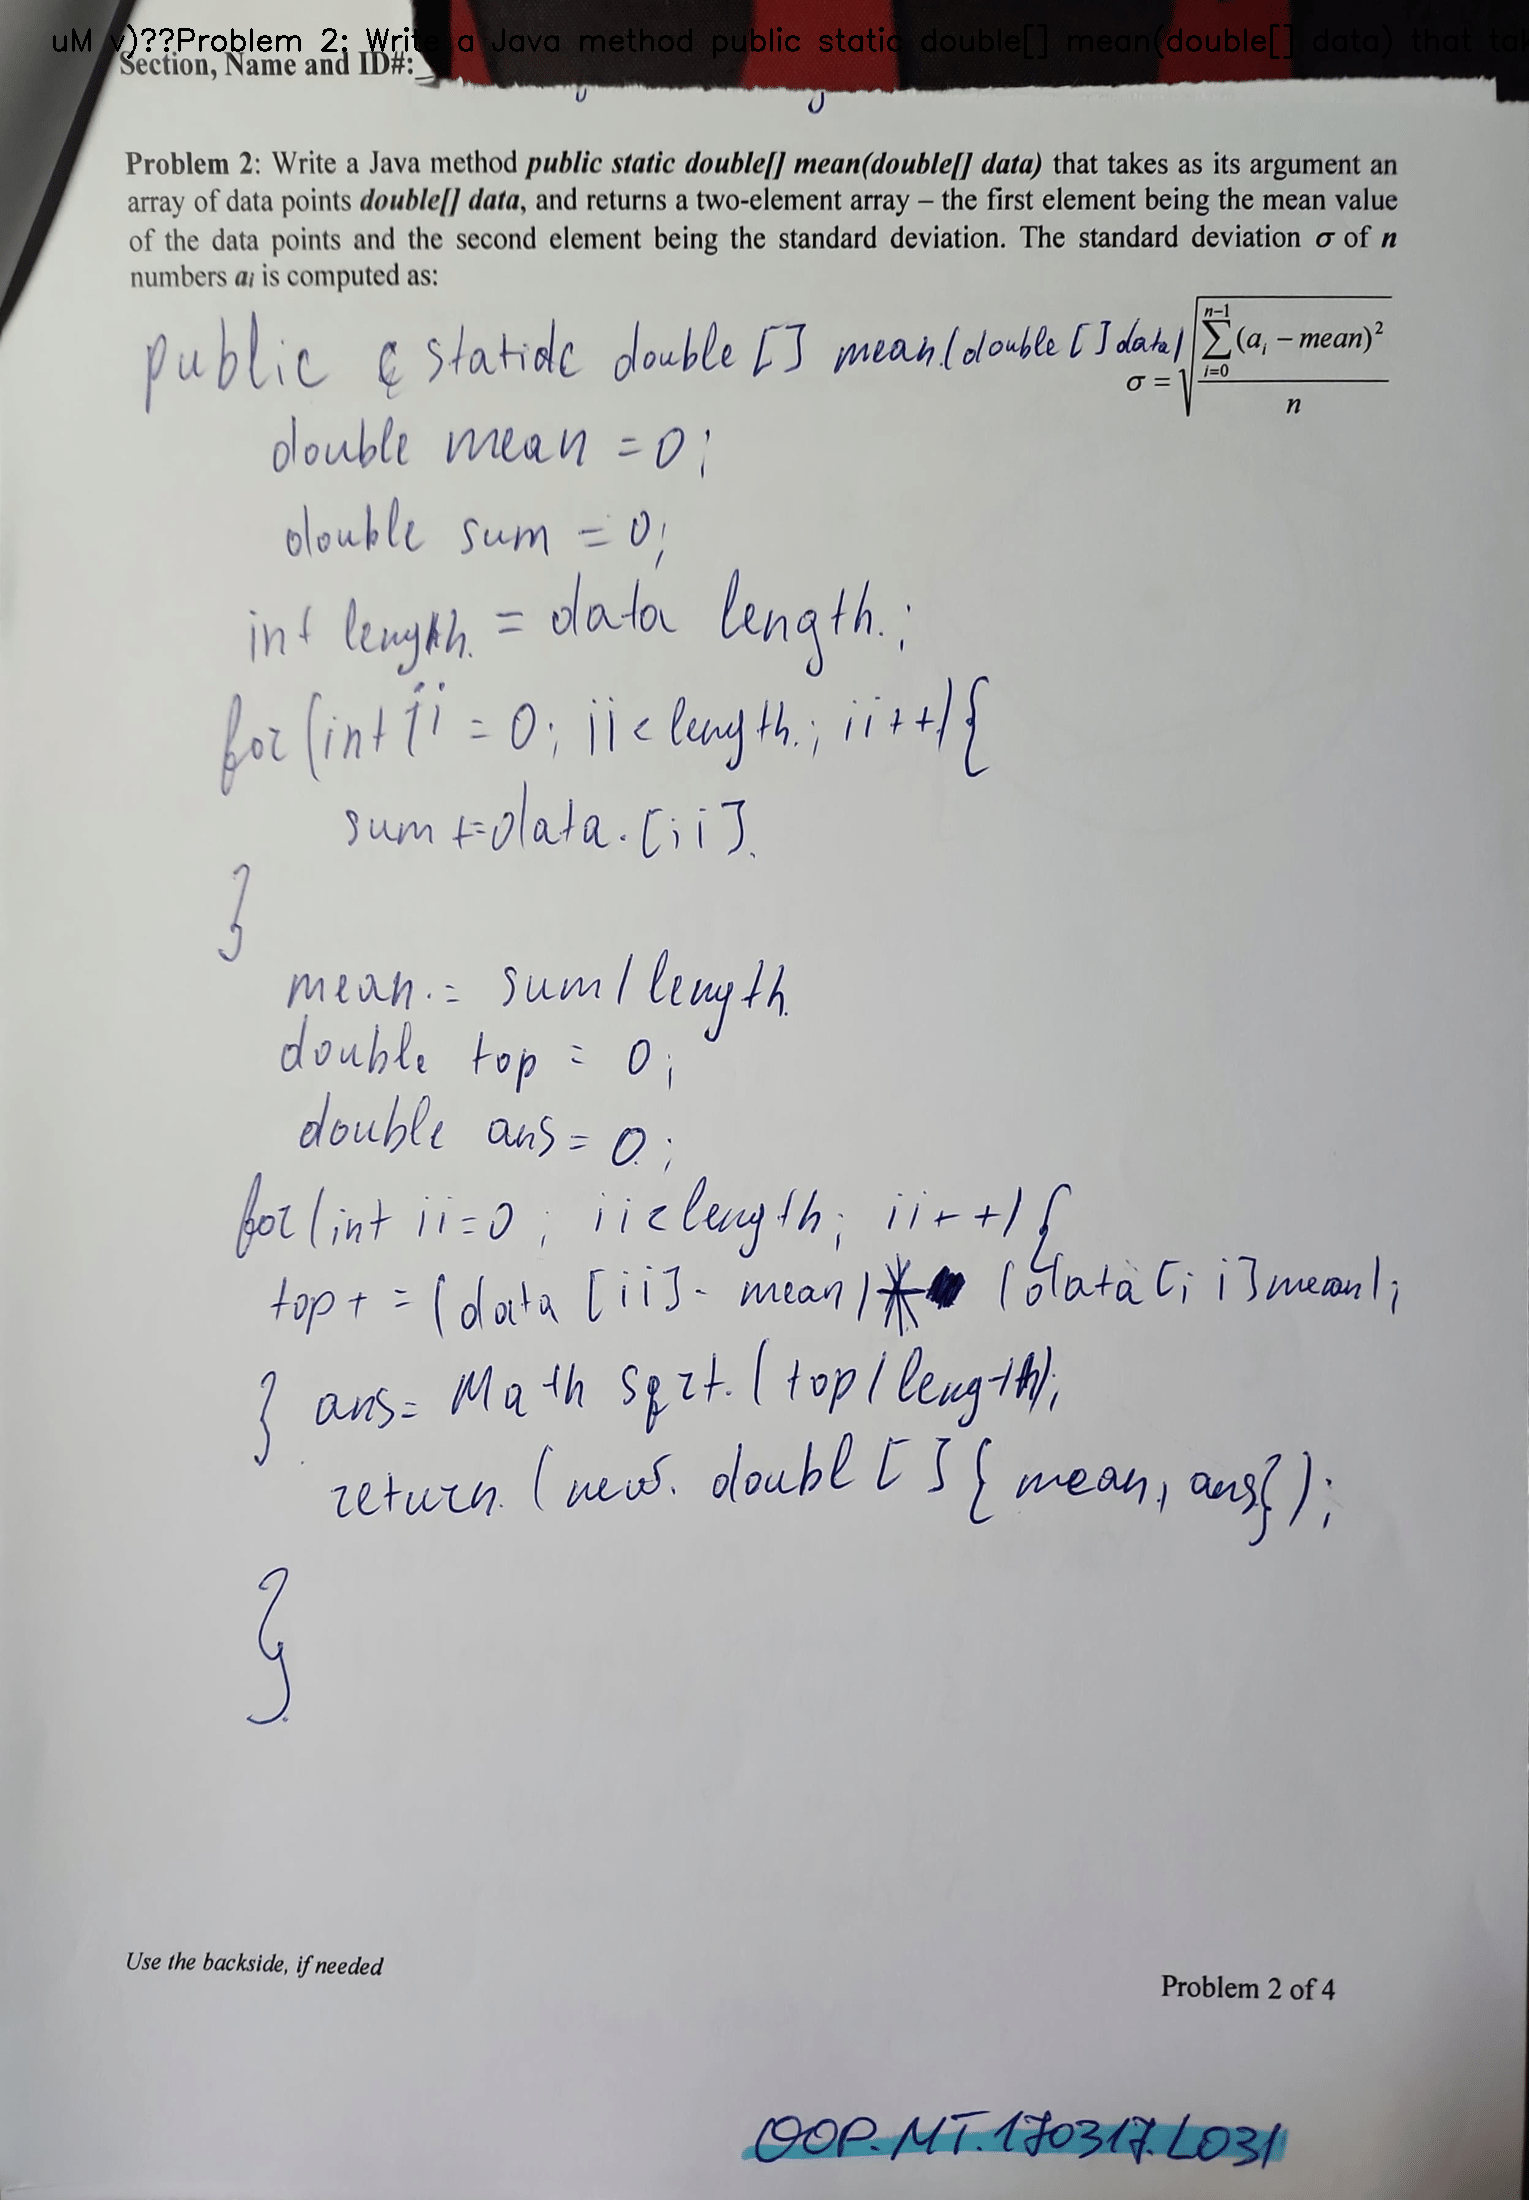 uM v)??Problem 2: Write a Java method public static double[] mean(double[] data) that tak
Section, Name and ID#:
Problem 2: Write a Java method public static double[] mean(double[] data) that takes as its argument an
array of data points double[] data, and returns a two-element array – the first element being the mean value
of the data points and the second element being the standard deviation. The standard deviation σ of n
numbers aᵢ is computed as:
σ = √(∑_{i=0}^{n-1} (aᵢ – mean)² / n)
public static double [] mean(double [] data)
double mean = 0;
double sum = 0;
int length = data length.;
for (int ii = 0; ii < length.; ii++) {
sum += data.[ii].
}
mean.= sum / length
double top = 0;
double ans = 0;
for (int ii=0; ii<length; ii++) {
top + = (data [ii] - mean) * (data [ii] mean);
} ans= Math sqrt. (top / length);
return. (new. doubl [] { mean, ans});
}
Use the backside, if needed
Problem 2 of 4
OOP.MT.170317.L031